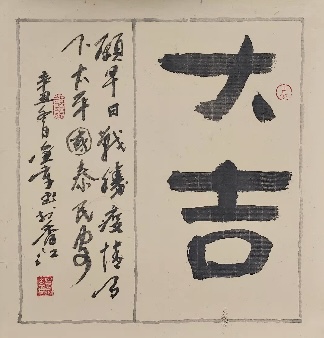 大吉
願早日戰勝疫情天
下太平國泰民安
辛丑